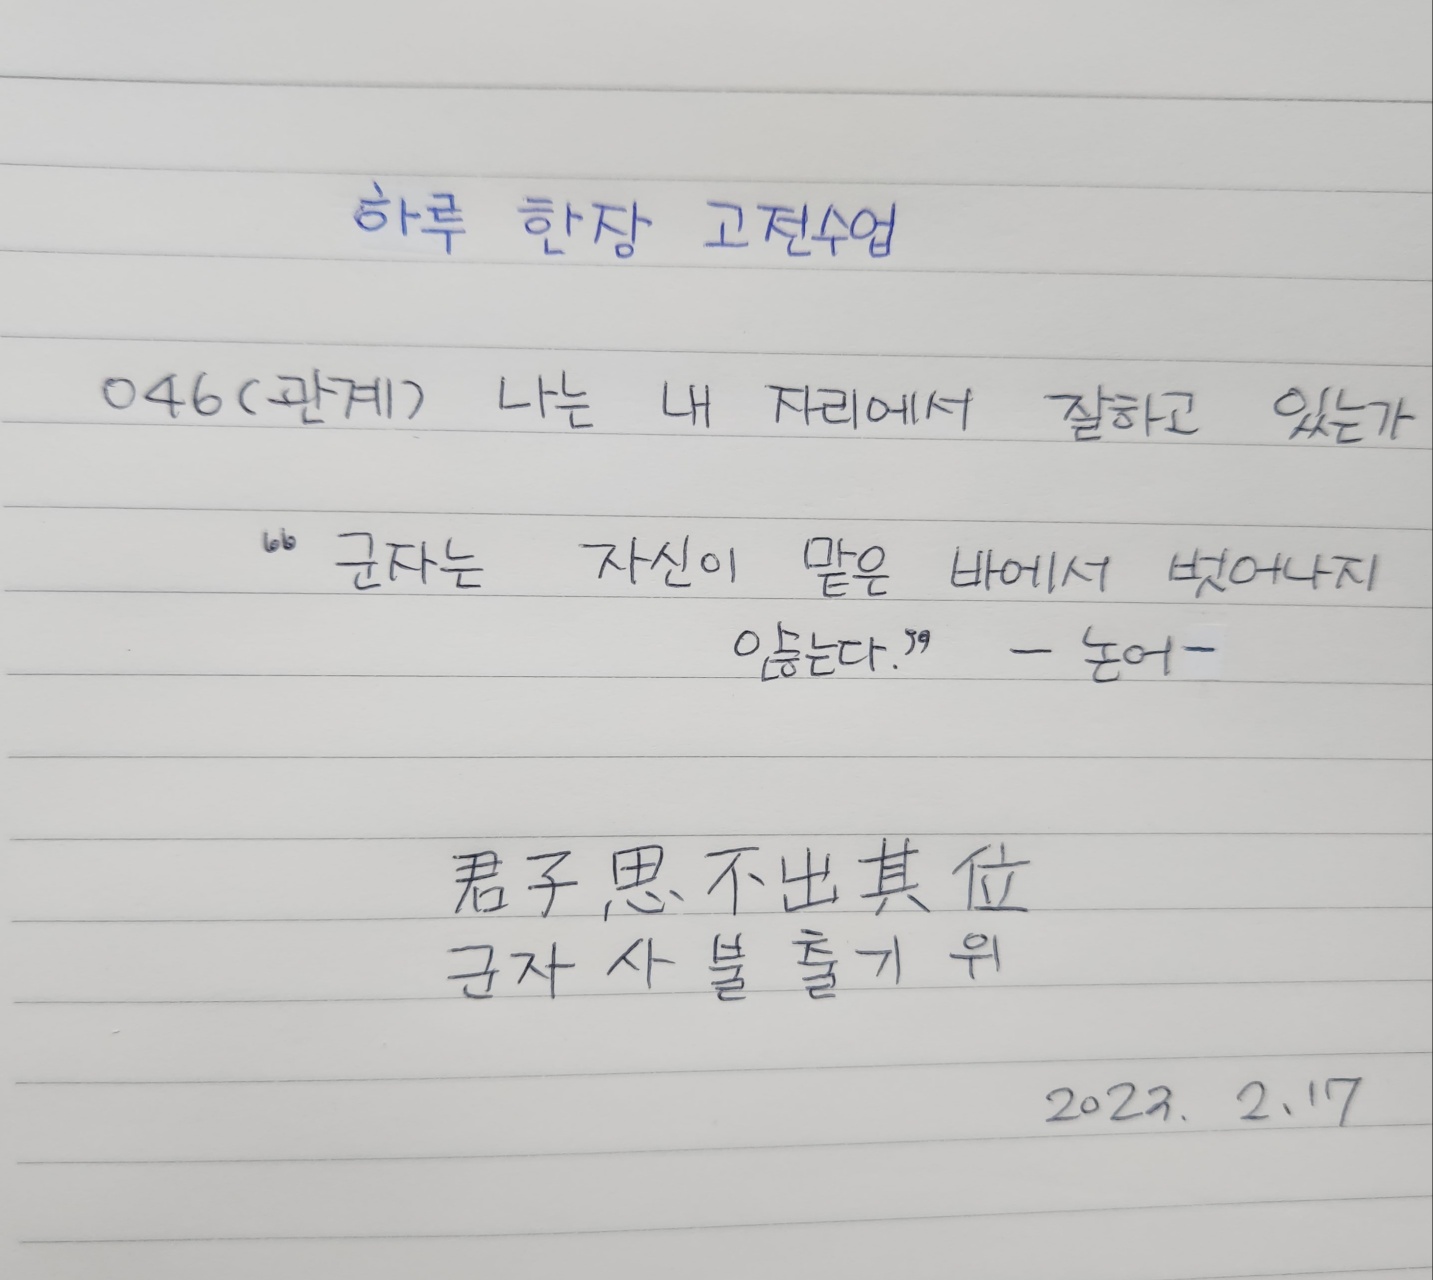 하루 한장 고전수업
046(관계) 나는 내 자리에서 잘하고 있는가
“ 군자는 자신이 맡은 바에서 벗어나지
않는다.” - 논어-
君子思不出其位
군자사불출기위
2022. 2.17